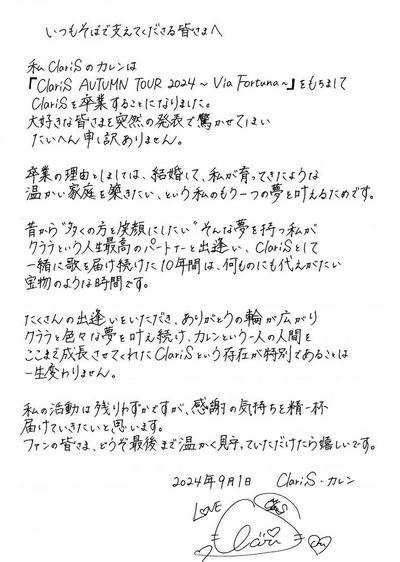 いつもそばで支えてくださる皆さまへ
私 ClariSのカレンは
『ClariS AUTUMN TOUR 2024 ~ Via Fortuna~』をもちまして
ClariSを卒業することになりました。
大好きな皆さまを突然の発表で驚かせてしまい
たいへん申し訳ありません。
卒業の理由としましては、結婚して、私が育ってきたような
温かい家庭を築きたい、という私のもう一つの夢を叶えるためです。
昔から"多くの方を笑顔にしたい"そんな夢を持つ私が
クララという人生最高のパートナーと出逢い、ClariSとして
一緒に歌を届け続けた10年間は、何ものにも代えがたい
宝物のような時間です。
たくさんの出逢いをいただき、ありがとうの輪が広がり
クララと色々な夢を叶え続け、カレンという一人の人間を
ここまで成長させてくれたClariSという存在が特別であることは
一生変わりません。
私の活動は残りわずかですが、感謝の気持ちを精一杯
届けていきたいと思います。
ファンの皆さま、どうぞ最後まで温かく見守っていただけたら嬉しいです。
2024年9月1日 ClariS・カレン
LOVE